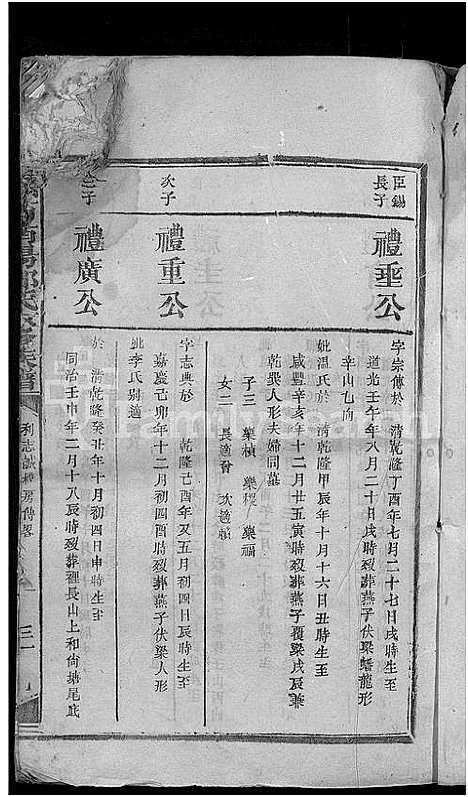 臣錫
長子
禮垂公
字宗傳於 清乾隆丁酉年七月二十七日戌時生至
道光壬午年八月二十日戌時歿葬燕子伏梁蟠龍形
辛山乙向
妣温氏於 清乾隆甲辰年十月十六日丑時生至
咸豐辛亥年十二月廿五寅時歿葬燕子覆梁戌辰兼
乾巽人形夫婦同墓
子三 樂楨 樂標 樂福
女二 長適曾 次適賴
次子
禮重公
字志典於 乾隆己酉年又五月初四日辰時生至
嘉慶己卯年十二月初四酉時歿葬燕子伏梁人形
妣李氏别適
子
禮廣公
於 清乾隆癸丑年十月初四日申時生至
同治壬申年二月十八辰時歿葬裡長山上和尚塘尾底
氏
譜
利志誠 房傳畧
三